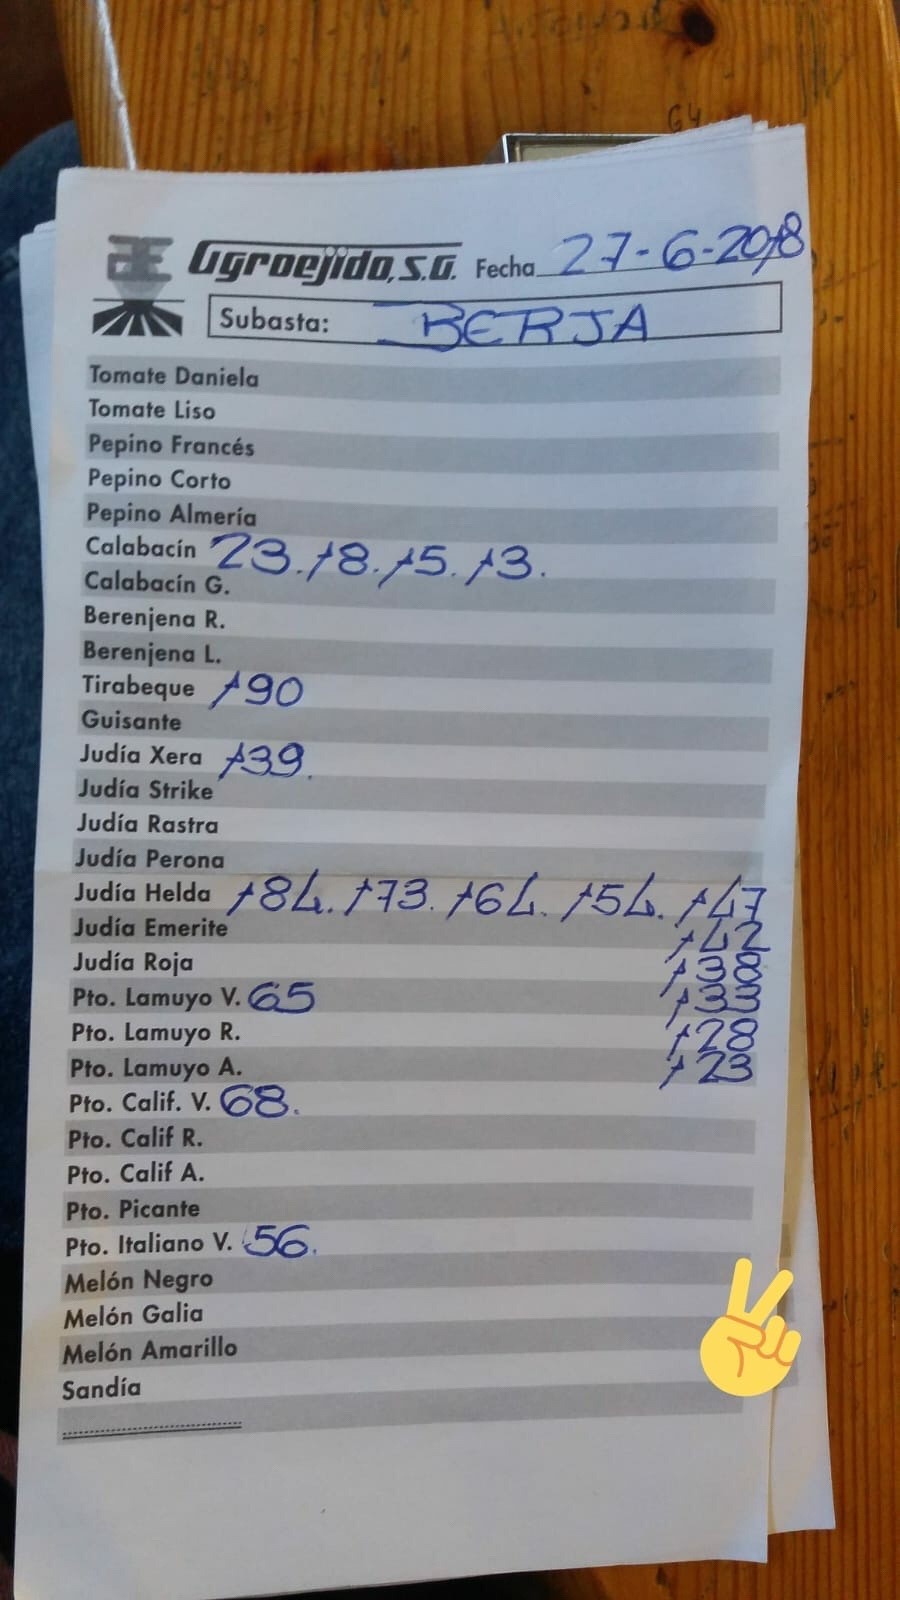 Agroejido, S.A. Fecha 27-6-2018
Subasta: BERJA
Tomate Daniela
Tomate Liso
Pepino Francés
Pepino Corto
Pepino Almería
Calabacín 23. 18. 15. 13.
Calabacín G.
Berenjena R.
Berenjena L.
Tirabeque 190
Guisante
Judía Xera 139.
Judía Strike
Judía Rastra
Judía Perona
Judía Helda 184. 173. 164. 154. 147
Judía Emerite 142
Judía Roja 138
Pto. Lamuyo V. 65 133
Pto. Lamuyo R. 128
Pto. Lamuyo A. 123
Pto. Calif. V. 68.
Pto. Calif R.
Pto. Calif A.
Pto. Picante
Pto. Italiano V. 56.
Melón Negro
Melón Galia
Melón Amarillo
Sandía